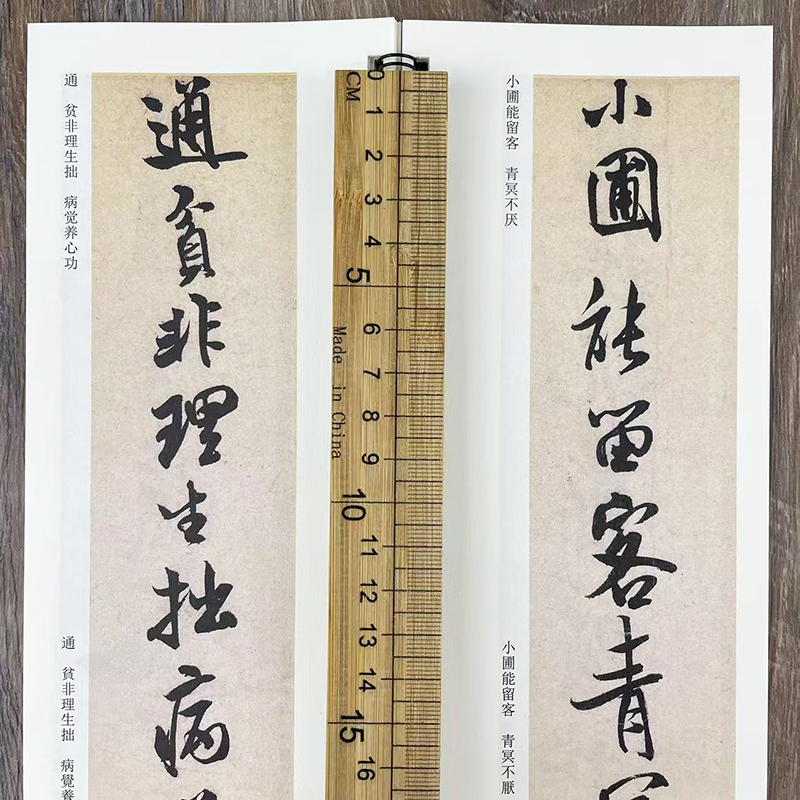 小圃能留客青
小圃能留客 青冥不厌
小圃能留客 青冥不厭
0 1 2 3 4 5 6 7 8 9 10 11 12 13 14 15 16
CM
Made in China
通貧非理生拙病
通 贫非理生拙 病觉养心功
通 貧非理生拙 病覺養